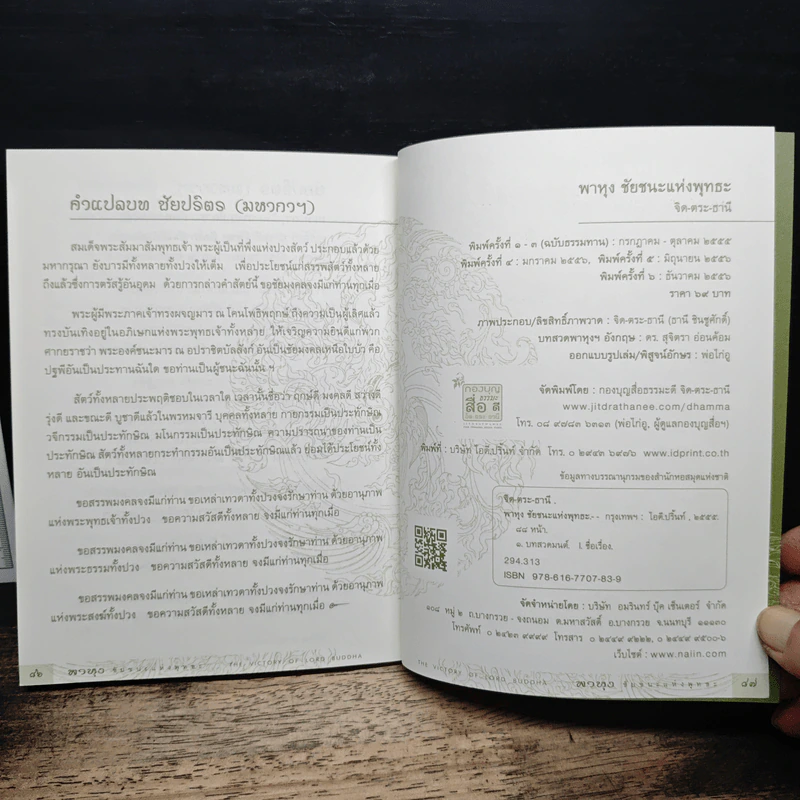 คำแปลบท ชัยปริตร (มหากาฯ)
สมเด็จพระสัมมาสัมพุทธเจ้า พระผู้เป็นที่พึ่งแห่งปวงสัตว์ ประกอบแล้วด้วย
มหากรุณา ยังบารมีทั้งหลายทั้งปวงให้เต็ม เพื่อประโยชน์แก่สรรพสัตว์ทั้งหลาย
ถึงแล้วซึ่งการตรัสรู้อันอุดม ด้วยการกล่าวคำสัตย์นี้ ขอชัยมงคลจงมีแก่ท่านทุกเมื่อ
พระผู้มีพระภาคเจ้าทรงผจญมาร ณ โคนโพธิพฤกษ์ ถึงความเป็นผู้เลิศแล้ว
ทรงบันเทิงอยู่ในอภิเษกแห่งพระพุทธเจ้าทั้งหลาย ให้เจริญความยินดีแก่พวก
ศากยราชว่า พระองค์ชนะมาร ณ อปราชิตบัลลังก์ อันเป็นชัยมงคลเหนือใบบัว คือ
ปฐพีอันเป็นประทานฉันใด ขอท่านเป็นผู้ชนะฉันนั้น ฯ
สัตว์ทั้งหลายประพฤติชอบในเวลาใด เวลานั้นชื่อว่า ฤกษ์ดี มงคลดี สว่างดี
รุ่งดี และขณะดี บูชาดีแล้วในพรหมจารี บุคคลทั้งหลาย กายกรรมเป็นประทักษิณ
วจีกรรมเป็นประทักษิณ มโนกรรมเป็นประทักษิณ ความปรารถนาของท่านเป็น
ประทักษิณ สัตว์ทั้งหลายกระทำกรรมอันเป็นประทักษิณแล้ว ย่อมได้ประโยชน์ทั้ง
หลาย อันเป็นประทักษิณ
ขอสรรพมงคลจงมีแก่ท่าน ขอเหล่าเทวดาทั้งปวงจงรักษาท่าน ด้วยอานุภาพ
แห่งพระพุทธเจ้าทั้งปวง ขอความสวัสดีทั้งหลาย จงมีแก่ท่านทุกเมื่อ
ขอสรรพมงคลจงมีแก่ท่าน ขอเหล่าเทวดาทั้งปวงจงรักษาท่าน ด้วยอานุภาพ
แห่งพระธรรมทั้งปวง ขอความสวัสดีทั้งหลาย จงมีแก่ท่านทุกเมื่อ
ขอสรรพมงคลจงมีแก่ท่าน ขอเหล่าเทวดาทั้งปวงจงรักษาท่าน ด้วยอานุภาพ
แห่งพระสงฆ์ทั้งปวง ขอความสวัสดีทั้งหลาย จงมีแก่ท่านทุกเมื่อ
๔๖ พาหุง ชัยชนะแห่งพุทธะ THE VICTORY OF LORD BUDDHA
พาหุง ชัยชนะแห่งพุทธะ
จิต-ตระ-ธานี
พิมพ์ครั้งที่ ๑ - ๓ (ฉบับธรรมทาน) : กรกฎาคม - ตุลาคม ๒๕๕๕
พิมพ์ครั้งที่ ๔ : มกราคม ๒๕๕๖, พิมพ์ครั้งที่ ๕ : มิถุนายน ๒๕๕๖
พิมพ์ครั้งที่ ๖ : ธันวาคม ๒๕๕๖
ราคา ๖๙ บาท
ภาพประกอบ/ลิขสิทธิ์ภาพวาด : จิต-ตระ-ธานี (ธานี ชินชูศักดิ์)
บทสวดพาหุงฯ อังกฤษ : ดร. สุจิตรา อ่อนค้อม
ออกแบบรูปเล่ม/พิสูจน์อักษร : พ่อไก่อู
กองบุญ
ธรรมะ
สื่อ ดี
จัดพิมพ์โดย : กองบุญสื่อธรรมะดี จิต-ตระ-ธานี
www.jitdrathanee.com/dhamma
โทร. ๐๘ ๙๗๘๓ ๖๓๑๓ (พ่อไก่อู, ผู้ดูแลกองบุญสื่อฯ)
พิมพ์ที่ : บริษัท ไอดี.ปริ้นท์ จำกัด โทร. ๐๒ ๙๔๒ ๖๙๗๖ www.idprint.co.th
ข้อมูลทางบรรณานุกรมของสำนักหอสมุดแห่งชาติ
จิต-ตระ-ธานี .
พาหุง ชัยชนะแห่งพุทธะ.-- กรุงเทพฯ : ไอดี.ปริ้นท์ , ๒๕๕๕.
๘๔ หน้า.
๑. บทสวดมนต์. I. ชื่อเรื่อง.
294.313
ISBN 978-616-7707-83-9
จัดจำหน่ายโดย : บริษัท อมรินทร์ บุ๊ค เซ็นเตอร์ จำกัด
๑๐๘ หมู่ ๒ ถ.บางกรวย - จงถนอม ต.มหาสวัสดิ์ อ.บางกรวย จ.นนทบุรี ๑๑๑๓๐
โทรศัพท์ ๐ ๒๔๒๓ ๙๙๙๙ โทรสาร ๐ ๒๔๔๙ ๙๒๒๒, ๐ ๒๔๔๙ ๙๕๐๐-๖
เว็บไซต์ : www.naiin.com
THE VICTORY OF LORD BUDDHA พาหุง ชัยชนะแห่งพุทธะ ๔๗